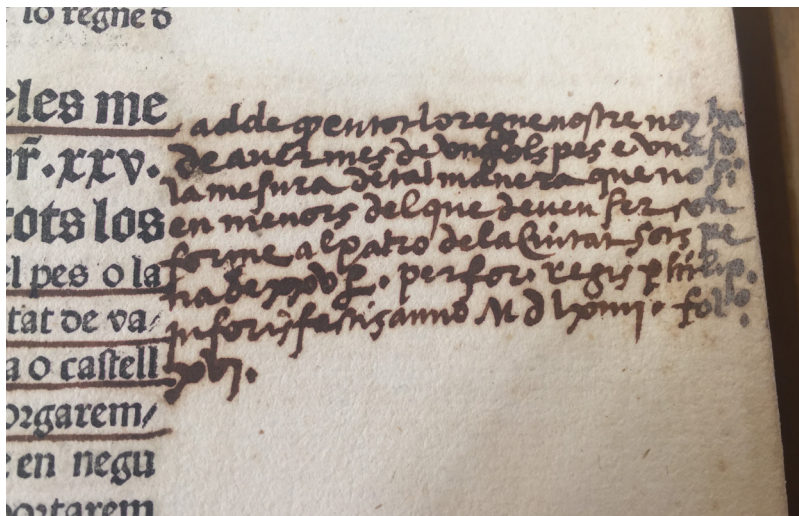 lo regne d
eles me
.xxv.
tots los
el pes o la
tat de va/
a o castell
orgarem/
e en negu
portarem
adde q en tot lo regne nostre noy ha
de auer mes de vn sols pes e vna so
la mesura de tal manera que no si
en menors del que deuen ser con
forme al patro dela Ciutat sots pe
na de xxv ₤. per for. regis phi lip.
in foris factis anno M d lxiiii. folio.
xvj.